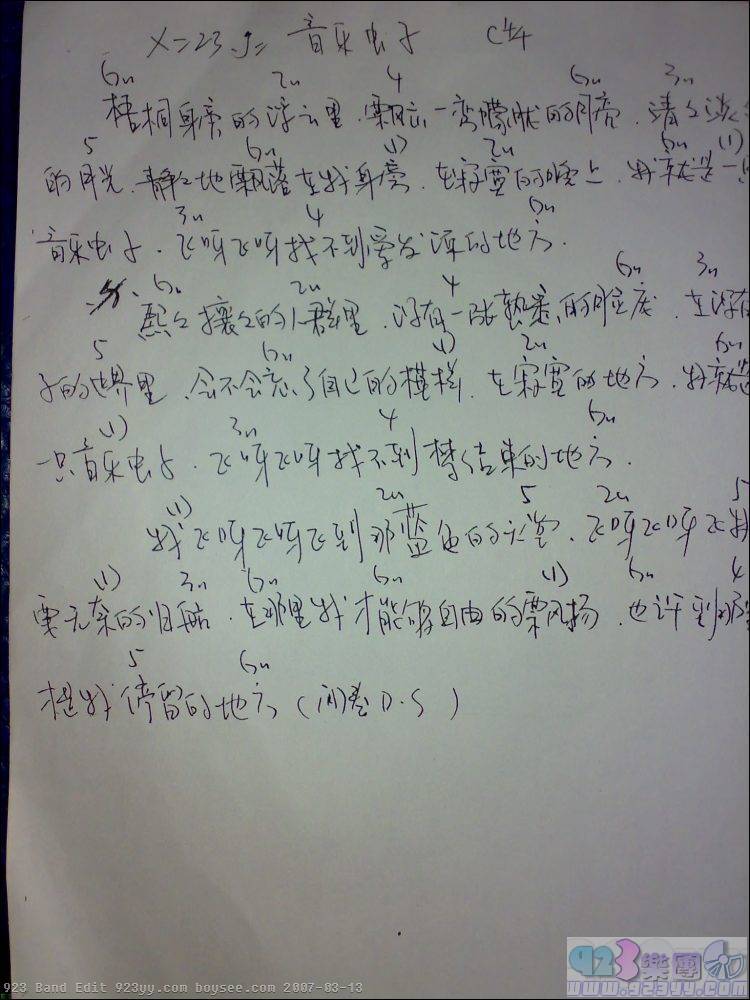 X=23 J= 音乐虫子 C 4/4
6m 2m 4 6m 3m
梧桐身旁的浮云里.飘忽一弯朦胧的月亮.清清淡淡
5 6m (1) 2m 6m (1)
的月光.静静地飘落在我身旁.在寂寞的晚上.我就是一只
3m 4 6m
音乐虫子.飞呀飞呀找不到爱发源的地方.
6m 2m 4 6m 3m
熙熙攘攘的人群里.没有一张熟悉的脸庞.在没有
5 6m (1) 2m 6m
子的世界里.会不会忘了自己的模样.在寂寞的地方.我就是
(1) 3m 4 6m
一只音乐虫子.飞呀飞呀找不到梦结束的地方.
(1) 2m 5 2m 5
我飞呀飞呀飞到那蓝色的天堂.飞呀飞呀飞我
(1) 3m 6m 6m (1) 6m 4
要无奈的归航.在那里我才能够自由的飘扬.也许到那里
5 6m
才是我停留的地方(间奏D.S)
923 Band Edit 923yy.com boysee.com 2007-03-13
923樂團
www.923yy.com